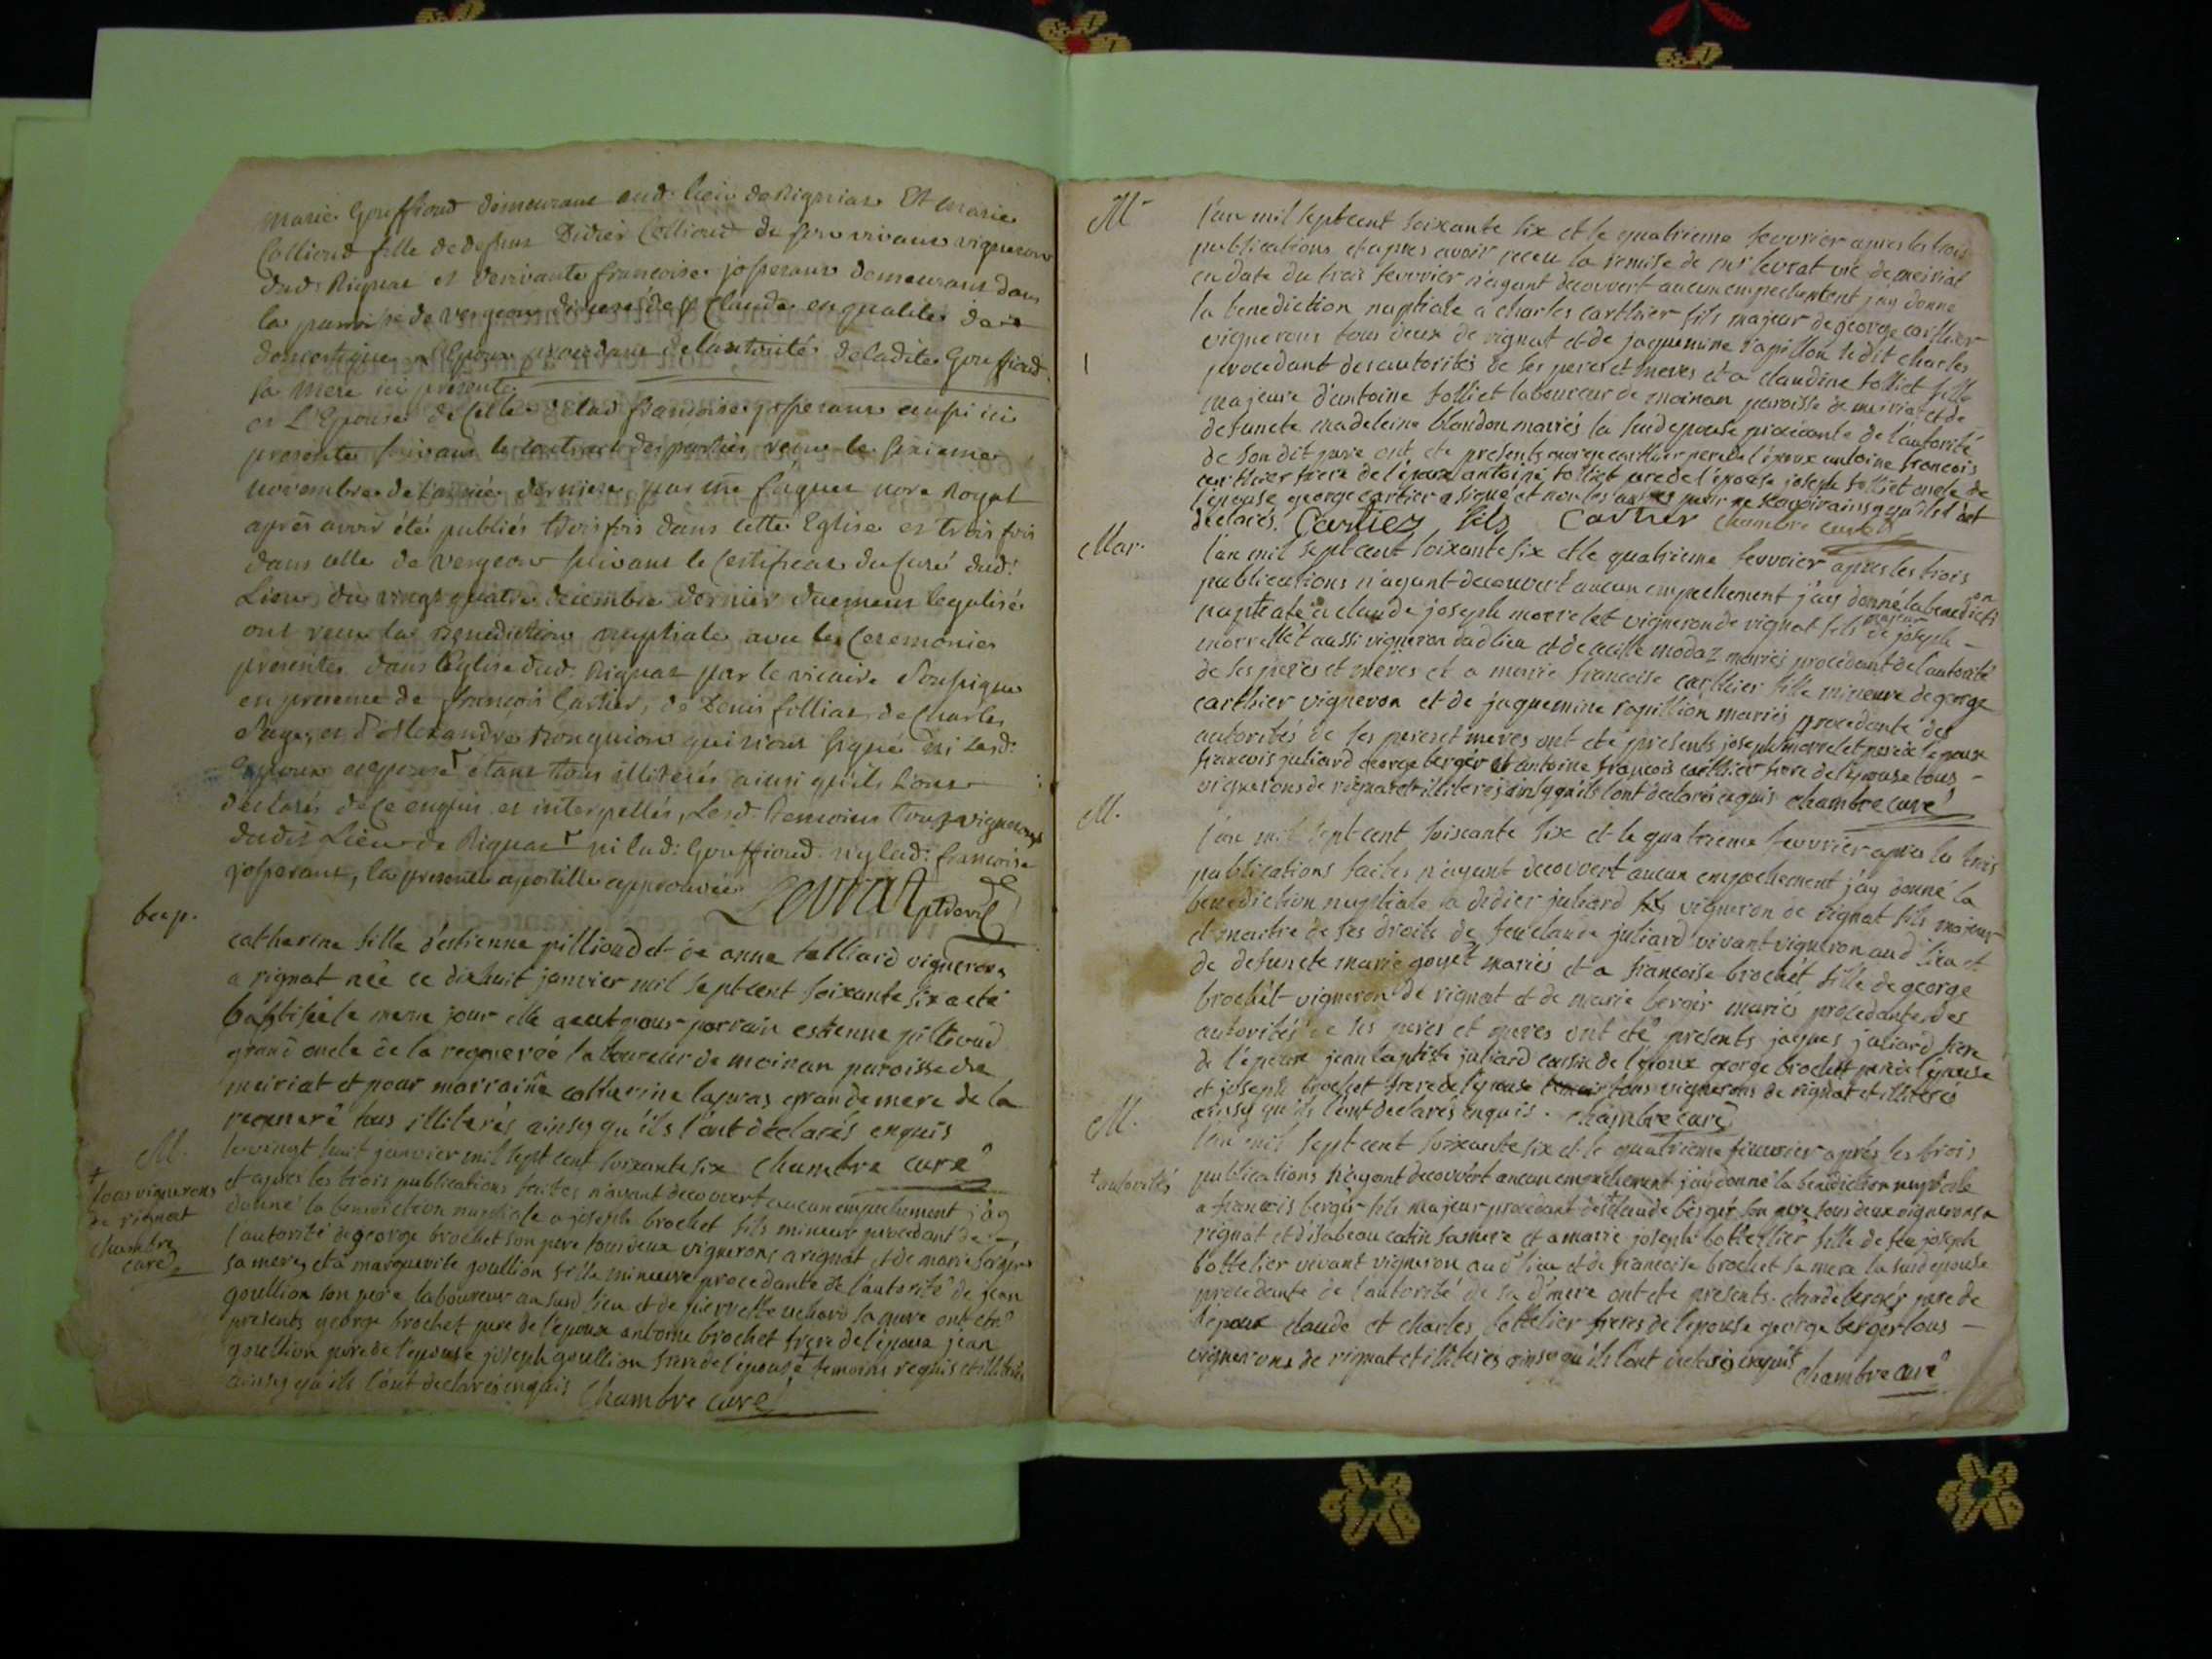 marie Gouffioud demeurant aud. lieu de Rignat Et marie
Collioud fille de deffunt Didier Collioud de son vivant vigneron
dud. Rignat et de vivante francoise josserant demeurant dans
la parroisse de vergeon diocese de St Claude en qualité de
domestique L'Epoux procedant de l'autorité de ladite Gouffioud
sa mere ici presente
et L'Epouse de celle de lad. francoise josserant aussi ici
presente suivant le contract des parties reçu le
novembre de l'année derniere par me faguet nore Royal
après avoir été publiés trois fois dans cette Eglise et trois fois
dans celle de vergeon suivant le Certificat du curé dud.
Lieu du vingt quatre decembre dernier duement legalisé
ont reçu la Benediction nuptiale avec les Ceremonies
presentes dans l'Eglise dud. Rignat par le vicaire Soussigné
en presence de françois Cartier, de Denis folliat de Charles
et d'Alexandre qui n'ont signé ni lesd.
epoux et epouse étant tous illiterés ainsi qu'ils l'ont
declarés de ce enquis et interpellés, Lesd. Temoins tous vignerons
dudit Lieu de Rignat ni lad. Gouffioud ny lad. francoise
josserant, la presente apostille approuvée
Levrat
bap.
catherine fille d'estienne pillioud et de anne talliard vignerons
a rignat née ce dixhuit janvier mil sept cent soixante six a eté
baptisée le meme jour elle a eut pour parrain estienne pillioud
grand oncle de la regenerée laboureur de moinan paroisse de
meiriat et pour marraine catherine lapras grande mere de la
regeneré tous illiterés ainsy qu'ils l'ont declarés enquis
M.
le vingt huit janvier mil sept cent soixante six Chambre curé
et apres les trois publications faites n'ayant decouvert aucun empechement j'ay
donné la benediction nuptiale a joseph brochet fils mineur procedant de
l'autorité de george brochet son pere tous deux vignerons a rignat et de marie berger
sa mere et a marguerite goullion fille mineure procedante de l'autorité de jean
goullion son pere laboureur au susd lieu et de pierrette sa mere ont eté
presents george brochet pere de l'epoux antoine brochet frere de l'epoux jean
goullion pere de l'epouse joseph goullion frere de l'epouse + temoins requis et illiterés
ainsy qu'ils l'ont declarés enquis Chambre curé
+
tous vignerons
de rignat
chambre
curé
M
l'an mil sept cent soixante six et le quatrieme fevvrier apres les trois
publications et apres avoir receu la remise de mr levrat vic de meiriat
en date du trois fevvrier n'ayant decouvert aucun empechement j'ay donné
la benediction nuptiale a charles carthier fils majeur de george carthier
vignerons tous deux de rignat et de jaquemine rapillon le dit charles
procedant des autorités de ses peres et meres et a claudine folliet fille
majeure d'antoine folliet laboureur de moinan paroisse de meiriat et de
defuncte madeleine blondon mariés la susd epouse procedante de l'autorité
de son dit pere ont eté presents george carthier pere de l'epoux antoine francois
carthier frere de l'epoux antoine folliet pere de l'epouse joseph folliet oncle de
l'epouse george cartier a signé et non les autres pour ne scavoir ainsy qu'ils l'ont
declarés. Cartiez fils Cartier Chambre curé
Mar.
l'an mil sept cent soixante six et le quatrieme fevvrier apres les trois
publications n'ayant decouvert aucun empechement j'ay donné la benediction
nuptiale a claude joseph morrelet vigneron de rignat fils majeur de joseph
morrellet aussi vigneron dud lieu et de modaz mariés procedant de l'autorité
de ses peres et meres et a marie francoise carthier fille mineure de george
carthier vigneron et de jaquemine rapillion mariés procedante des
autorités de ses peres et meres ont eté presents joseph morrelet pere de l'epoux
francois juliard george berger et antoine francois carthier frere de l'epouse tous
vignerons de rignat et illiterés ainsy qu'ils l'ont declarés enquis Chambre curé
M.
l'an mil sept cent soixante six et le quatrieme fevvrier apres les trois
publications faites n'ayant decouvert aucun empechement j'ay donné la
benediction nuptiale a didier juliard vigneron de rignat fils majeur
et maitre de ses droits de feu claude juliard vivant vigneron aud lieu et
de defuncte marie goyet mariés et a francoise brochet fille de george
brochet vigneron de rignat et de marie berger mariés procedante des
autorités de ses peres et meres ont eté presents jaques juliard frere
de l'epoux jean baptiste juliard cousin de l'epoux george brochet pere de l'epouse
et joseph brochet frere de l'epouse tous vignerons de rignat et illiterés
ainsy qu'ils l'ont declarés enquis. Chambre curé
M.
l'an mil sept cent soixante six et le quatrieme fevvrier apres les trois
publications n'ayant decouvert aucun empechement j'ay donné la benediction nuptiale
+ autorités
a francois berger fils majeur procedant des + claude berger son pere tous deux vignerons a
rignat et d'isabeau catin sa mere et a marie joseph bottellier fille de feu joseph
bottelier vivant vigneron aud lieu et de francoise brochet sa mere la susd epouse
procedante de l'autorité de sa d. mere ont eté presents claude berger pere de
l'epoux claude et charles bottelier freres de l'epouse george berger tous
vignerons de rignat et illiterés ainsy qu'ils l'ont declarés enquis Chambre curé